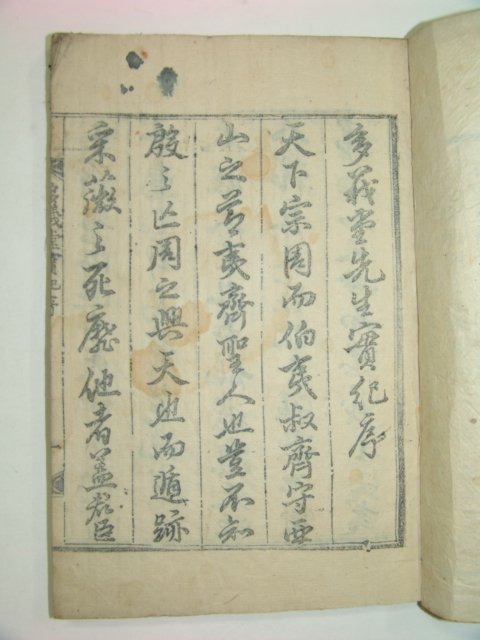 多義堂先生實紀序
天下宗周而伯夷叔齊守西
山之節夷齊聖人也豈不知
殷之亡周之興天也而遁跡
采薇之死靡他者盖君臣
多義堂實紀序 一